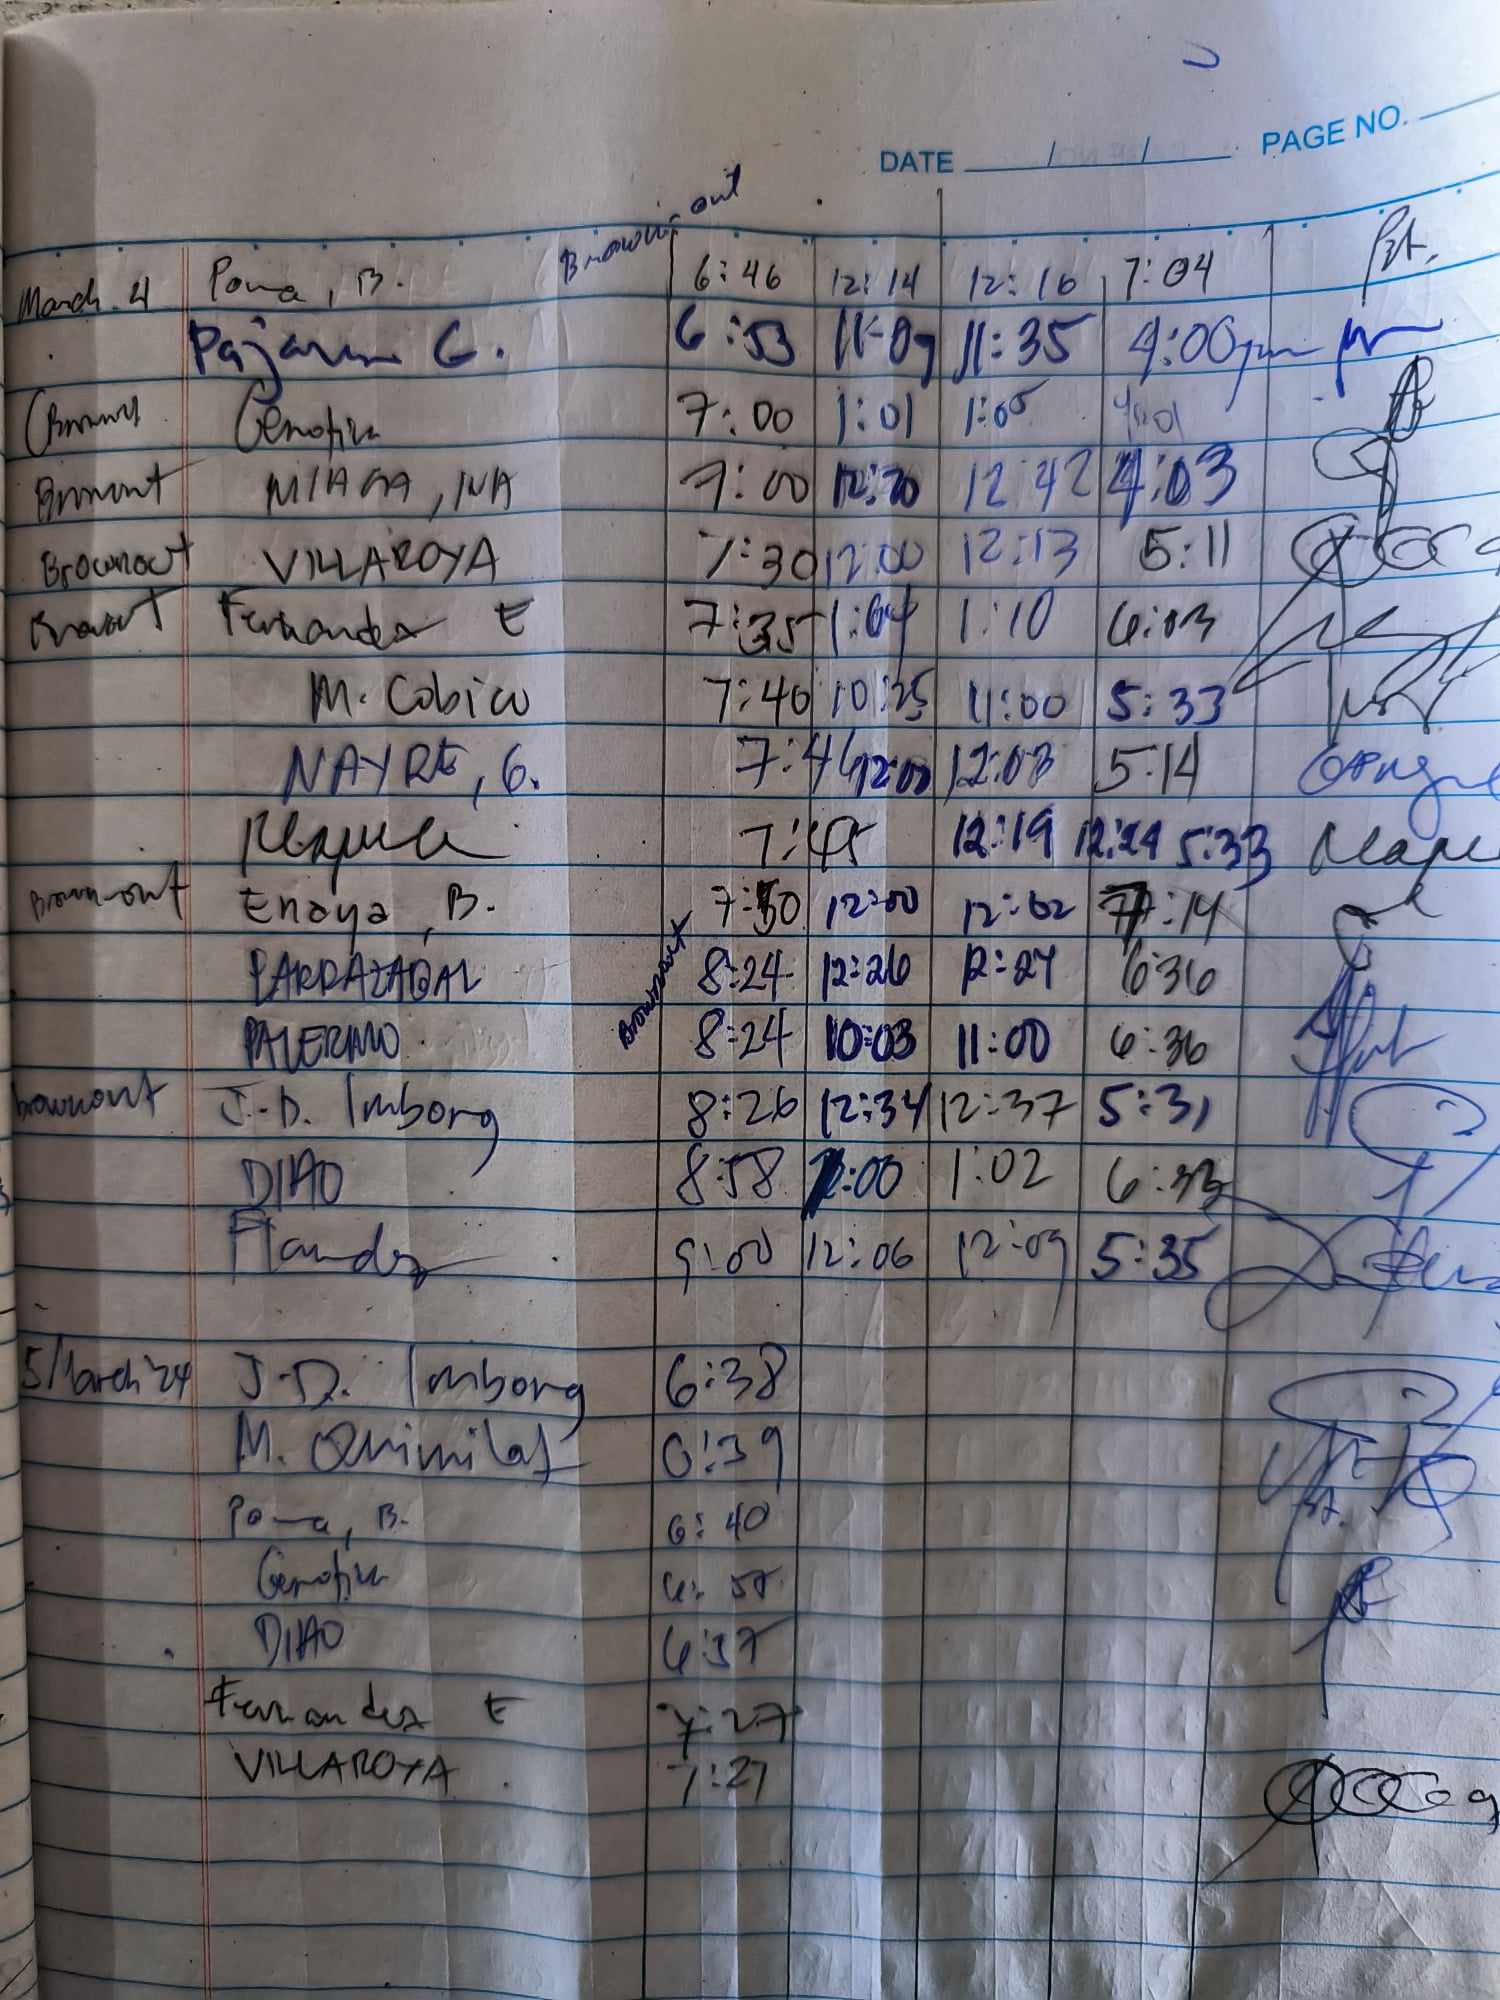 DATE / / PAGE NO.
Brown-out
March 4 Poma, B. 6:46 12:14 12:16 7:04
Pajarin G. 6:53 11:09 11:35 4:00pm
Genofin 7:00 1:01 1:05 4:01
Brownout NIAGA, NA 7:00 12:20 12:42 4:03
Brownout VILLAROYA 7:30 12:00 12:13 5:11
Fernandez E 7:35 1:04 1:10 6:03
M. Cobico 7:40 10:25 11:00 5:33
NAYRE, G. 7:46 12:00 12:03 5:14
7:45 12:19 12:24 5:33
Brown-out Enoya, B. 7:50 12:00 12:02 7:14
8:24 12:26 12:27 6:36
Brownout
PALERMO 8:24 10:03 11:00 6:36
brownout J.D. Imborg 8:26 12:34 12:37 5:31
DIAO 8:58 1:00 1:02 6:33
9:00 12:06 12:09 5:35
5/March '24 J.D. Imborg 6:38
M. Quimilat 6:39
Poma, B. 6:40
Genofin
DIAO 6:57
Fernandez E 7:27
VILLAROYA 7:27